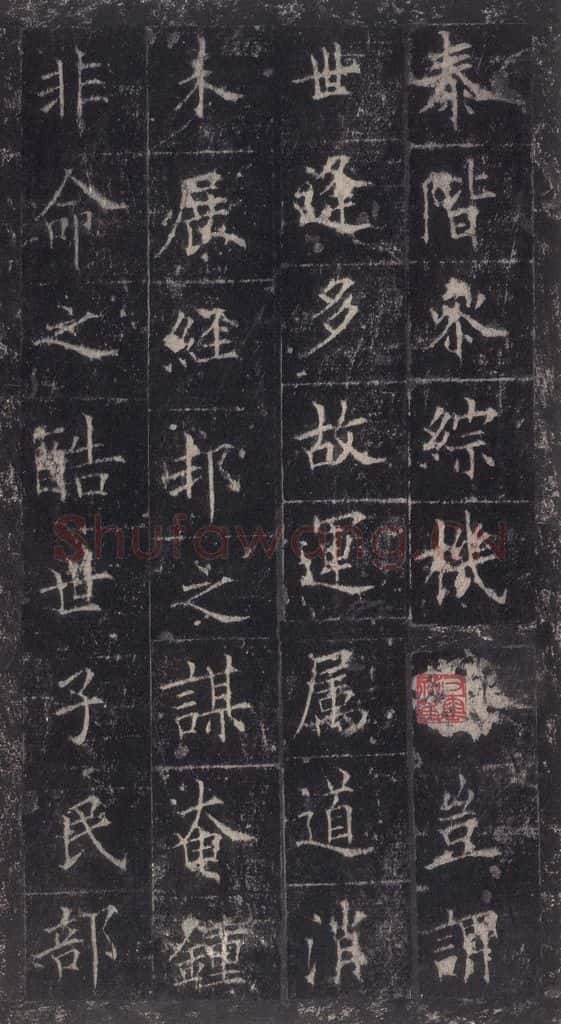 泰階叅綜機豈謂
世逢多故運属道消
未展經邦之謀奄鍾
非命之酷世子民部
Shufawang.CN